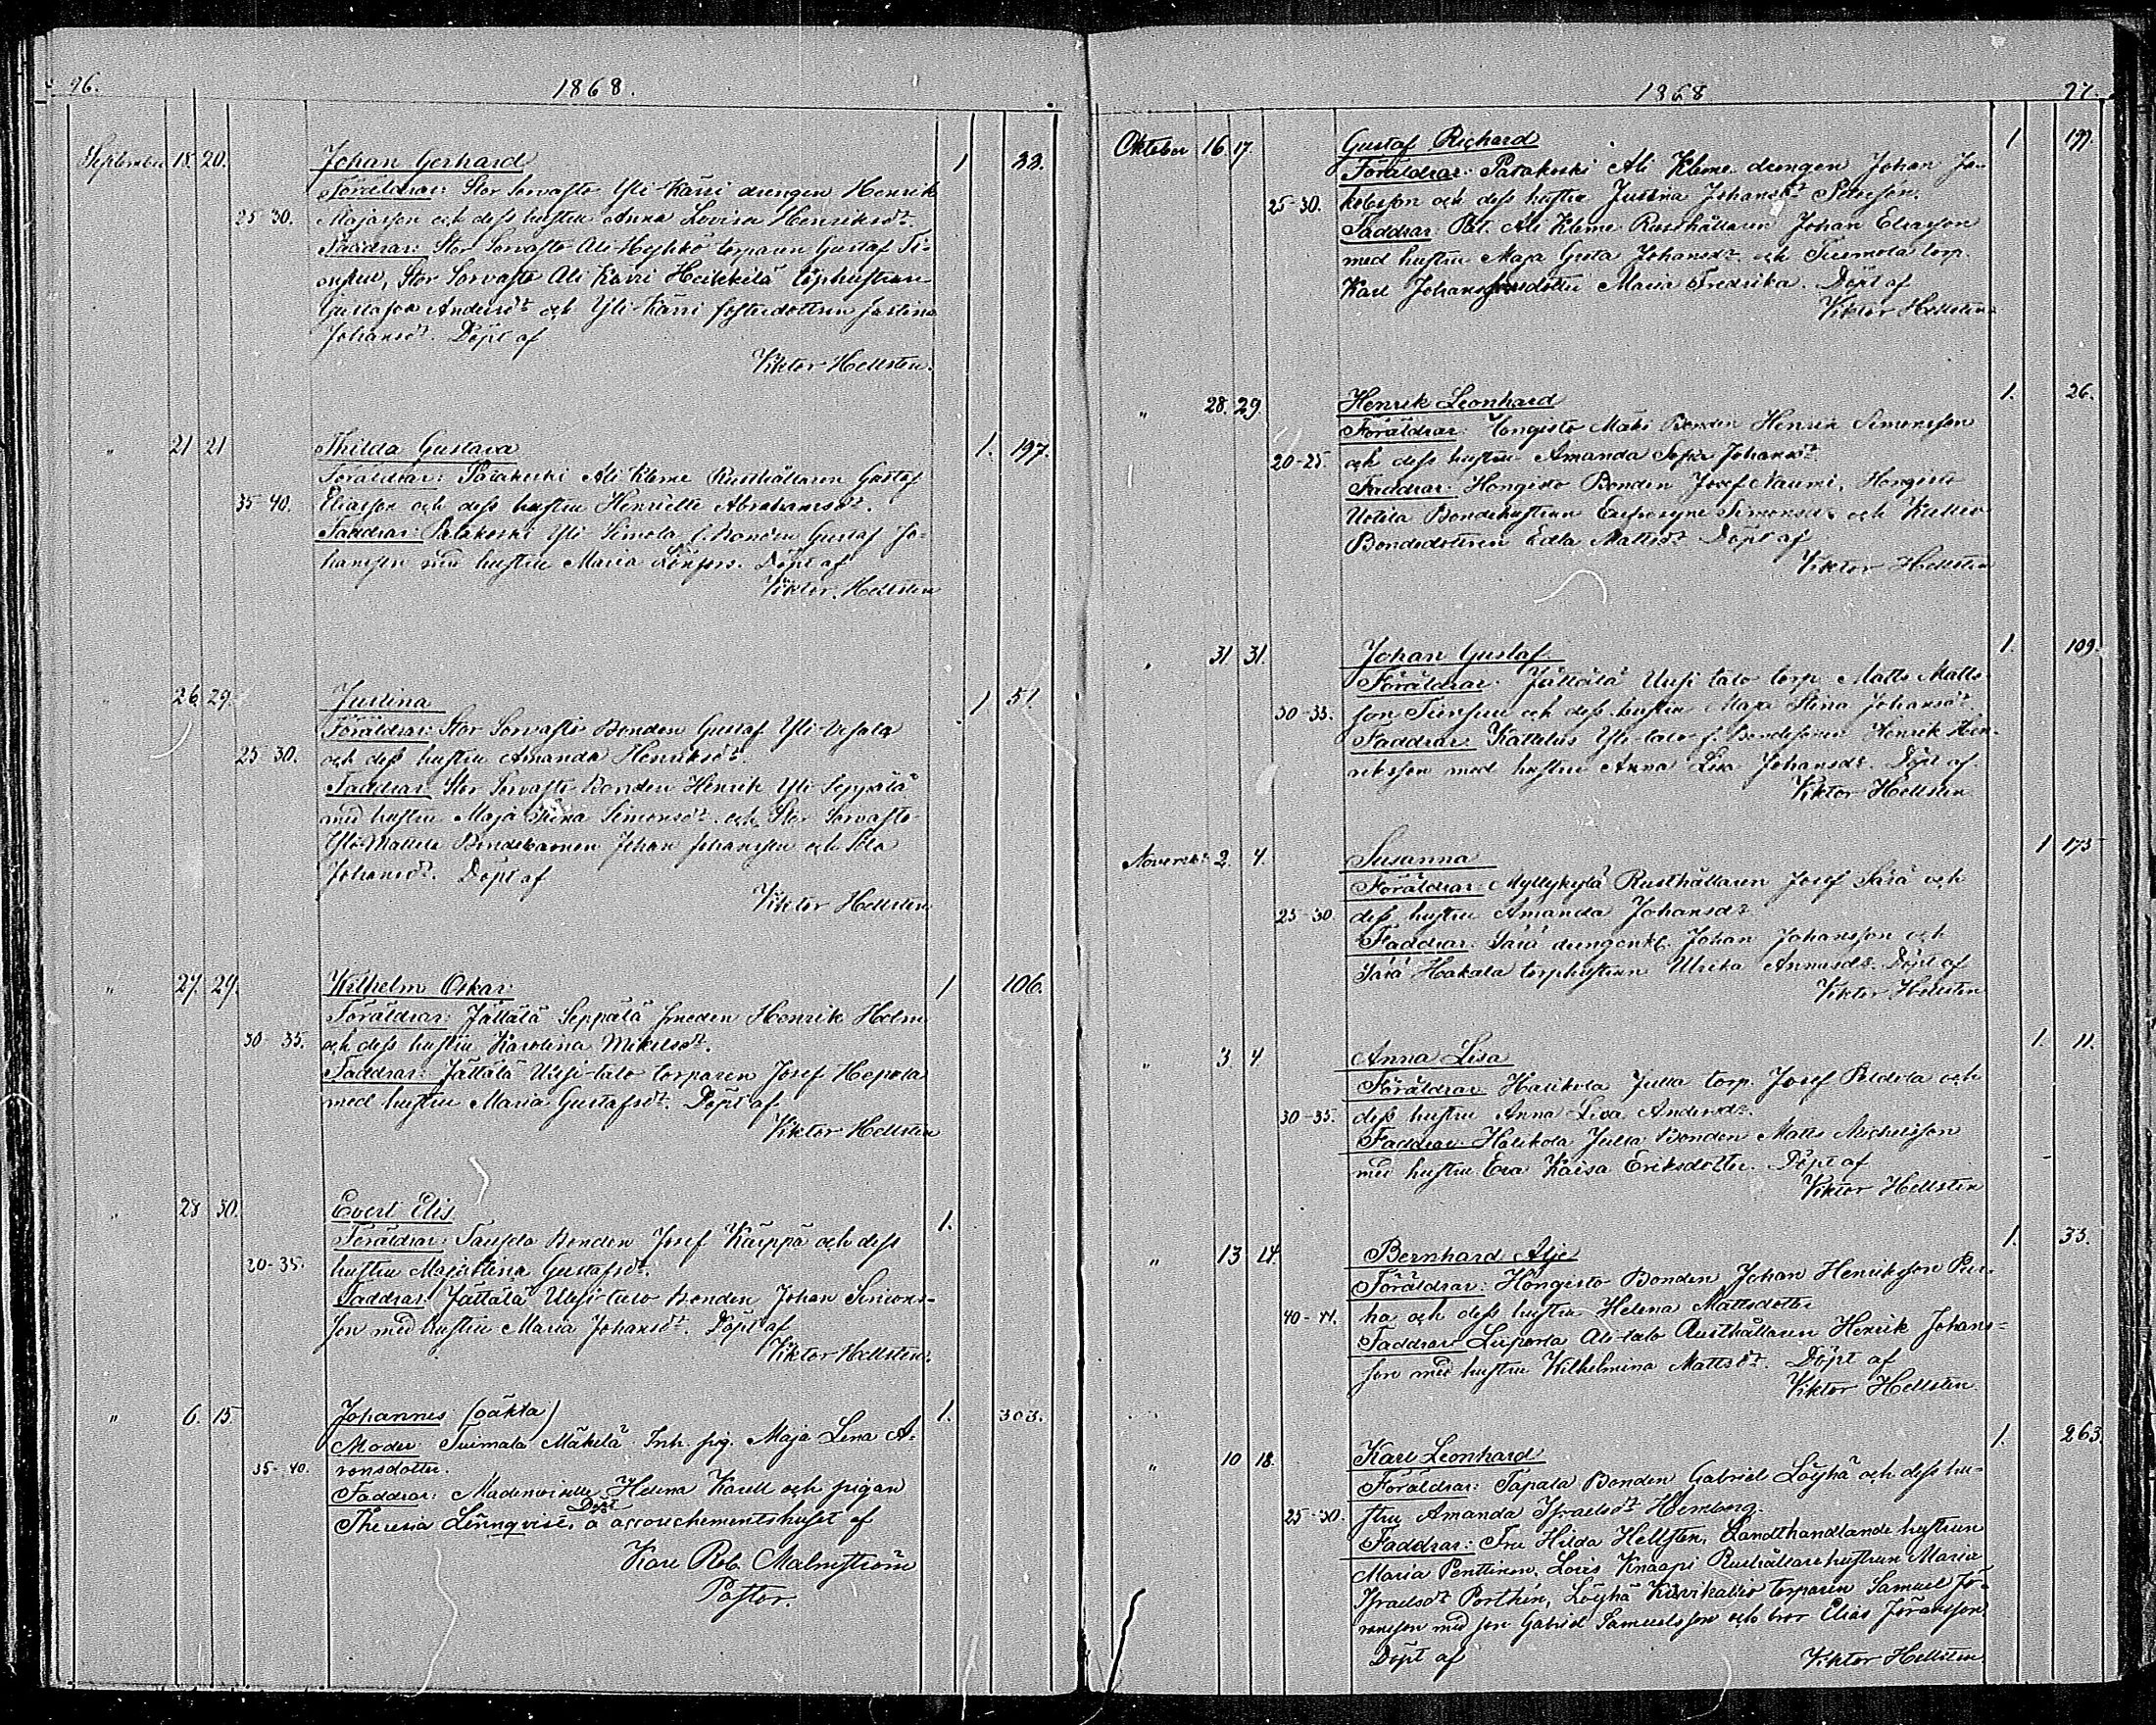 96.
1868.
September 18. 20.
Johan Gerhard 1 33.
Föräldrar: Stor Sorvasto Yli-Kärri drengen Henrik
25-30. Majasson och dess hustru Anna Lovisa Henriksdr.
Faddrar: Stor Sorvasto Ali-Heykkö torparen Gustaf
Stor Sorvasto Ali Kärri Heikkilä torphustrun
Gustafva Andersdr och Yli-Kärri fosterdottren Justina
Johansdr. Döpt af
Viktor Hellsten.
" 21 21
Thilda Gustava 1. 197.
Föräldrar: Patakoski Ali Kleme Rusthållaren Gustaf
35-40. Eliasson och dess hustru Henriette Abrahamsdr.
Faddrar: Patakoski Yli Simola f. Bonden Gustaf Jo-
hansson med hustru Maria Lönfors. Döpt af
Viktor Hellsten
" 26. 29.
Justina 1 51.
Föräldrar: Stor Sorvasto Bonden Gustaf Yli-Vesala
25-30. och dess hustru Amanda Henriksdr.
Faddrar: Stor Sorvasto Bonden Henrik Yli-Seppälä
med hustru Maja Stina Simonsdr. och Stor Sorvasto
Bondebarnen Johan Johansson och
Johansdr. Döpt af
Viktor Hellsten
" 27. 29.
Wilhelm Oskar 1 106.
Föräldrar: Jättälä Seppälä smeden Henrik Holm
30-35. och dess hustru Karolina Mikelsdr.
Faddrar: Jättälä Uusi-talo torparen Josef Hepola
med hustru Maria Gustafsdr. Döpt af
Viktor Hellsten
" 28 30.
Evert Elis 1.
Föräldrar: Bonden Josef Kärppä och dess
30-35. hustru Majastina Gustafsdr.
Faddrar: Jättälä Uusi-talo Bonden Johan Simons-
son med hustru Maria Johansdr. Döpt af
Viktor Hellsten.
" 6. 15
Johannes (oäkta) 1. 303.
Moder: Tuimala Mäkelä Inh. pig. Maja Lena A-
35-40. ronsdotter.
Faddrar: Mademoiselle Helena Karell och pigan
Theresia Lönnqvist. Döpt å accouchementshuset af
Karl Rob. Malmström
Pastor.
1868
97.
Oktober 16. 17.
Gustaf Richard 1 199.
Föräldrar: Patakoski Ali Kleme drengen Johan Ja-
25-30. kobsson och dess hustru Justina Johansdr Petersson.
Faddrar: Pat. Ali Kleme Rusthållaren Johan Eliasson
med hustru Maja Greta Johansdr. och Tuimola torp.
Karl Johanssons dotter Maria Fredrika. Döpt af
Viktor Hellsten
" 28. 29.
Henrik Leonhard 1. 26.
Föräldrar: Hongisto Mäki Bonden Henrik Simonsson
20-25 och dess hustru Amanda Sofia Johansdr.
Faddrar: Hongisto Bonden Josef Naumi, Hongisto
Uotila Bondehustrun Eufrosyne Simonsdr. och
Bondedottren Edla Mattsdr. Döpt af
Viktor Hellsten
" 31. 31.
Johan Gustaf 1. 109.
Föräldrar: Jättälä Uusi talo torp. Matts Matts-
30-35. son och dess hustru Maja Stina Johansdr.
Faddrar: Kattelus Yli-talo f. Bondesonen Henrik Hen-
riksson med hustru Anna Lisa Johansdr. Döpt af
Viktor Hellsten
November 2. 4.
Susanna 1 175
Föräldrar: Myllykylä Rusthållaren Josef Särä och
25-30 dess hustru Amanda Johansdr.
Faddrar: Särä drengen Johan Johansson och
Särä Hakala torphustrun Ulrika Annasdr. Döpt af
Viktor Hellsten
" 3 4
Anna Lisa 1. 11.
Föräldrar: Halikola Julla torp. Josef Peldola och
30-35. dess hustru Anna Lisa Andersdr.
Faddrar: Halikola Julla Bonden Matts Michelsson
med hustru Eva Kaisa Eriksdotter. Döpt af
Viktor Hellsten
" 13 14.
Bernhard 1. 33.
Föräldrar: Hongisto Bonden Johan Henriksson Pur-
40- ha och dess hustru Helena Mattsdotter
Faddrar: Ali-talo Rusthållaren Henrik Johans-
son med hustru Wilhelmina Mattsdr. Döpt af
Viktor Hellsten.
" 10 18.
Karl Leonhard 1. 263.
Föräldrar: Tapala Bonden Gabriel Löyhä och dess hu-
25-30. stru Amanda Israelsdr Hemberg.
Faddrar: Fru Hilda Hellsten, Landthandlande hustrun
Maria Penttinen, Lois Knaapi Rusthållarehustrun Maria
Israelsdr Porthén, Löyhä Kivikallio torparen Samuel Jö-
ransson med son Gabriel Samuelsson och bror Elias Jöransson.
Döpt af
Viktor Hellsten